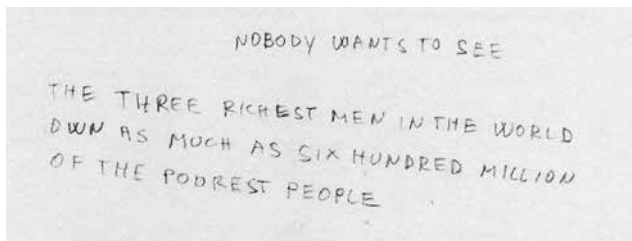 NOBODY WANTS TO SEE
THE THREE RICHEST MEN IN THE WORLD
OWN AS MUCH AS SIX HUNDRED MILLION
OF THE POOREST PEOPLE